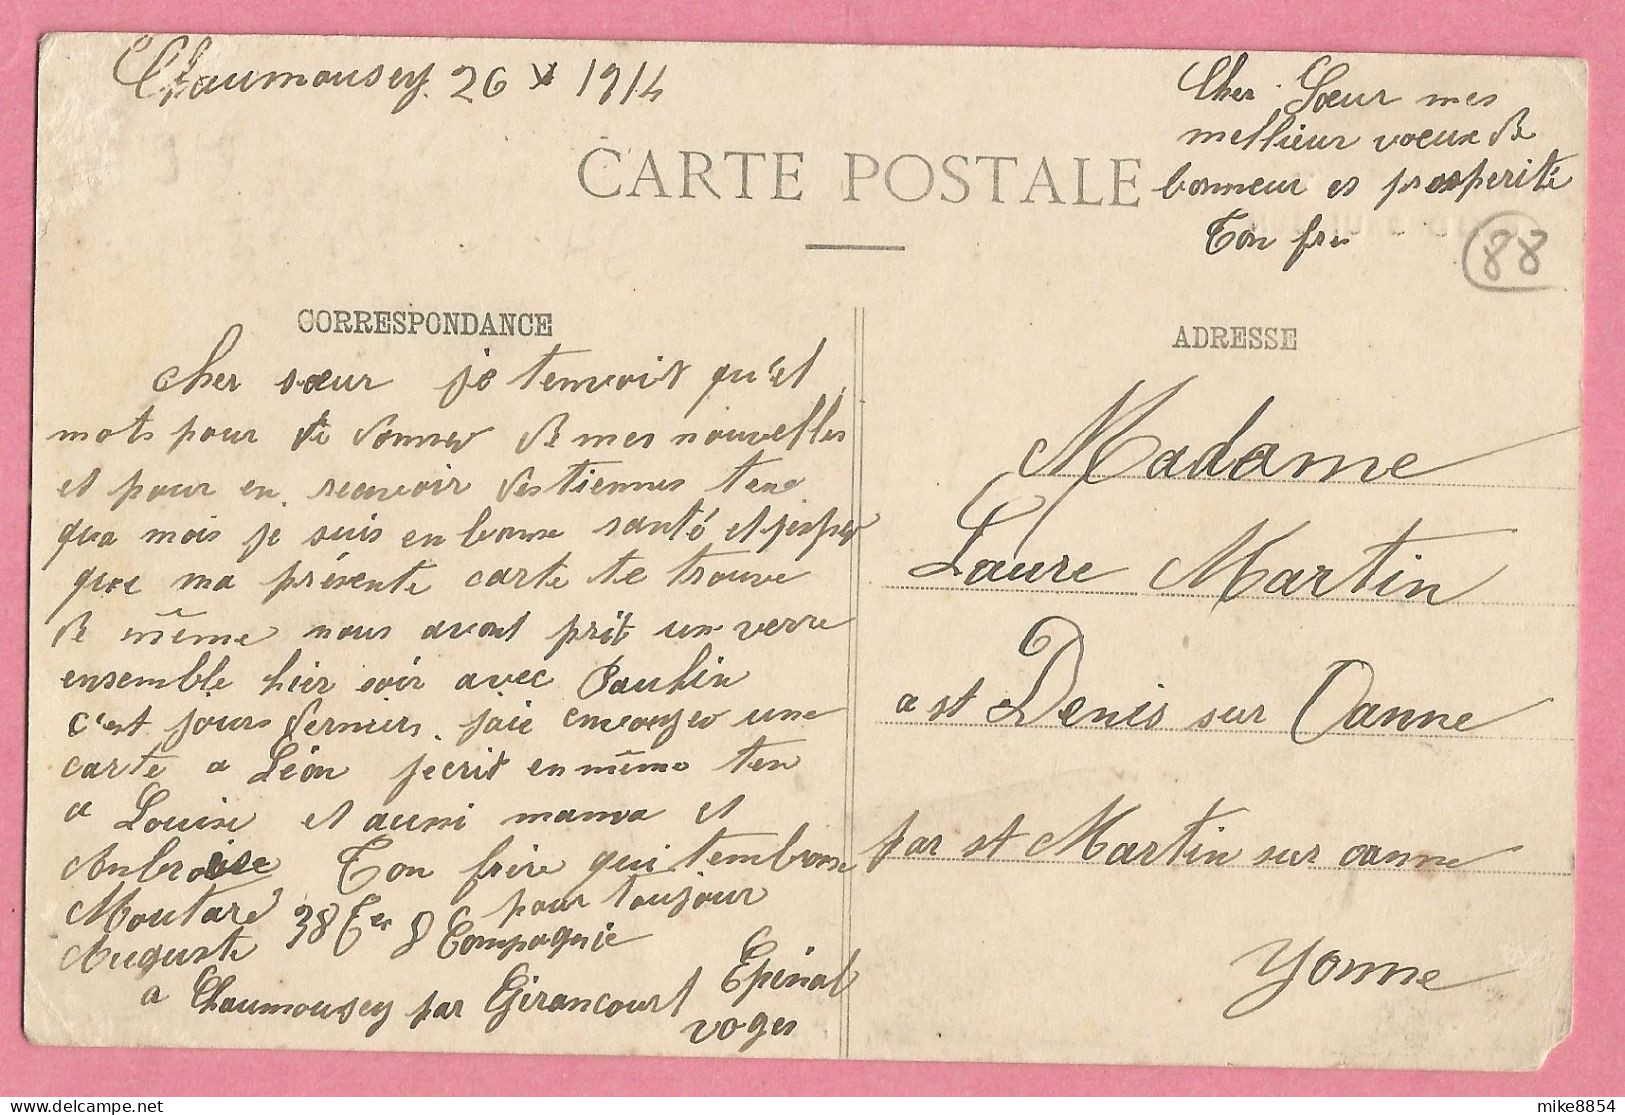 Chaumousey 26 X 1914
Cher Sœur mes
mellieur voeux de
bonneur et prosperité
Ton frè
88
CARTE POSTALE
CORRESPONDANCE
ADRESSE
cher sœur je tenvoit qu'el
mots pour te donner de mes nouvelles
et pour en recevoir des tiennes
qua mois je suis en bonne santé et jesper
que ma présente carte te trouve
de même nous avont prit un verre
ensemble hier soir avec Paulin
c'est jours derniers jaie envoyer une
carte a Léon jecrit en même ten
a Louise et aussi maman et
Ambroise Ton frère qui tembrasse
pour toujour
Moutard 38 Ter 8 Compagnie
Auguste
a Chaumousey par Girancourt Epinal
voges
Madame
Laure Martin
a st Denis sur Oanne
par st Martin sur oanne
Yonne
mike8854